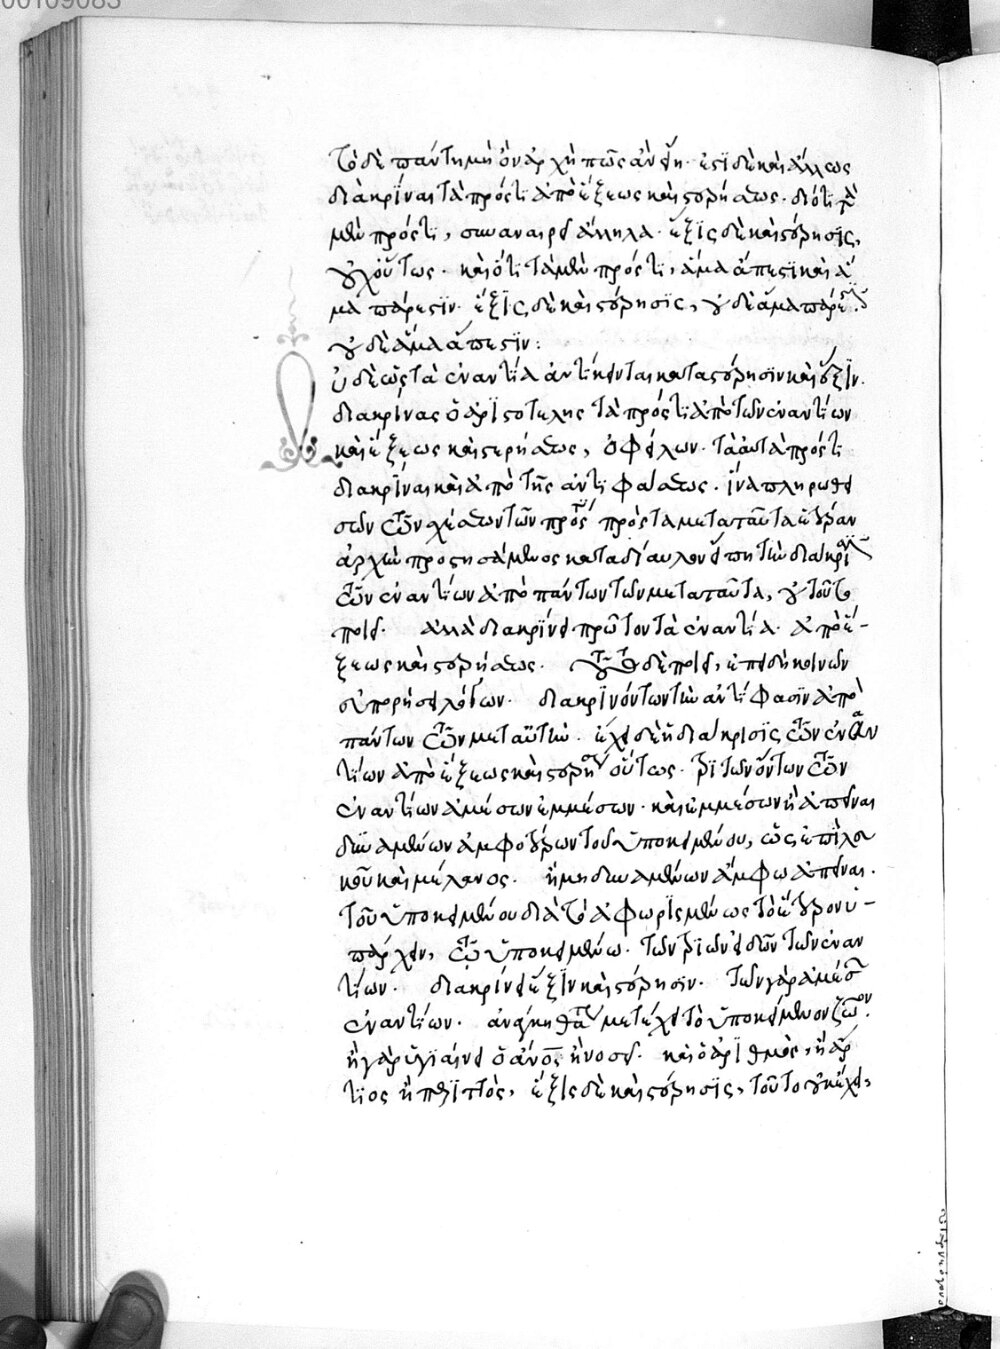 00109083
τὸ δὲ πάντη μὴ ὂν ἀρχὴ πῶς ἂν εἴη· ἔστι δὲ καὶ ἄλλως
διακρῖναι τὰ πρός τι ἀπὸ ἕξεως καὶ στερήσεως· διότι τὰ
μὲν πρός τι, συναναιρεῖ ἄλληλα· ἕξις δὲ καὶ στέρησις,
οὐχ οὕτως· καὶ ὅτι τὰ μὲν πρός τι, ἅμα ἄπεστι καὶ ἅ
μα πάρεστιν· ἕξις δὲ καὶ στέρησις, οὐδὲ ἅμα πάρεστιν·
οὐδὲ ἅμα ἄπεστιν:
ὐδὲ ὡς τὰ ἐναντία ἀντίκεινται κατὰ στέρησιν καὶ ἕξιν.
διακρίνας ὁ ἀριστοτέλης τὰ πρός τι ἀπὸ τῶν ἐναντίων
καὶ ἕξεως καὶ στερήσεως, ὀφείλων· τὰ αὐτὰ πρός τι
διακρῖναι καὶ ἀπὸ τῆς ἀντιφάσεως· ἵνα πληρωθεῖ
σῶν τῶν σχέσεων τῶν πρός τι πρὸς τὰ μετὰ ταῦτα ἑτέραν
ἀρχὴν προστησάμενος κατὰ δίαυλον εἴπῃ τὴν διάκρισιν
τῶν ἐναντίων ἀπὸ πάντων τῶν μετὰ ταῦτα, οὐ τοῦτο
ποιεῖ· ἀλλὰ διακρίνει πρῶτον τὰ ἐναντία ἀπὸ ἕ-
ξεως καὶ στερήσεως. τοῦτο δὲ ποιεῖ, ἐπειδὴ κοινῶν
εὐπορήσει λόγων διακρινόντων τὴν ἀντίφασιν ἀπὸ
πάντων τῶν μετ' αὐτήν. ἔχει δὲ ἡ διάκρισις τῶν ἐναν
τίων ἀπὸ ἕξεως καὶ στερήσεως οὕτως· τριττῶν ὄντων τῶν
ἐναντίων ἀμέσων ἐμμέσων· καὶ ἐμμέσων ἢ ἀπεῖναι
δυναμένων ἀμφοτέρων τοῦ ὑποκειμένου, ὡς ἐπὶ λευ
κοῦ καὶ μέλανος. ἢ μὴ δυναμένων ἄμφω ἀπεῖναι.
τοῦ ὑποκειμένου διὰ τὸ ἀφωρισμένως τὸ ἕτερον ὑ-
πάρχειν, τῷ ὑποκειμένῳ. τῶν τριῶν εἰδῶν τῶν ἐναν
τίων· διακρίνει ἕξιν καὶ στέρησιν. τῶν γὰρ ἀμέσων
ἐναντίων· ἀνάγκη θάτερον μετέχει τὸ ὑποκείμενον ζῶον.
ἢ γὰρ ὑγιαίνει ὁ ἄνος ἢ νοσεῖ. καὶ ὁ ἀριθμὸς, ἢ ἄρ
τιος ἢ περιττὸς, ἕξις δὲ καὶ στέρησις, τοῦτο οὐκ ἔχει,